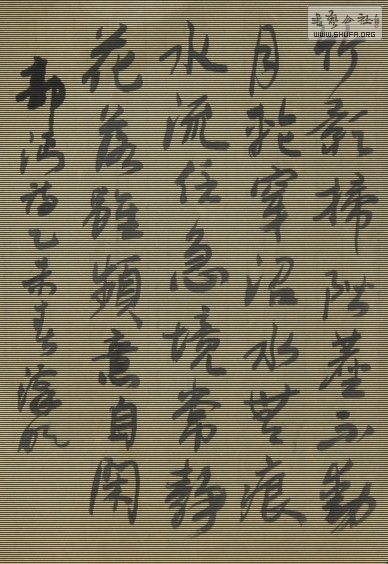 竹影掃階塵不動
月輪穿沼水無痕
水流任急境常靜
花落雖頻意自閑
詩乙未春
書藝公社
WWW.SHUFA.ORG